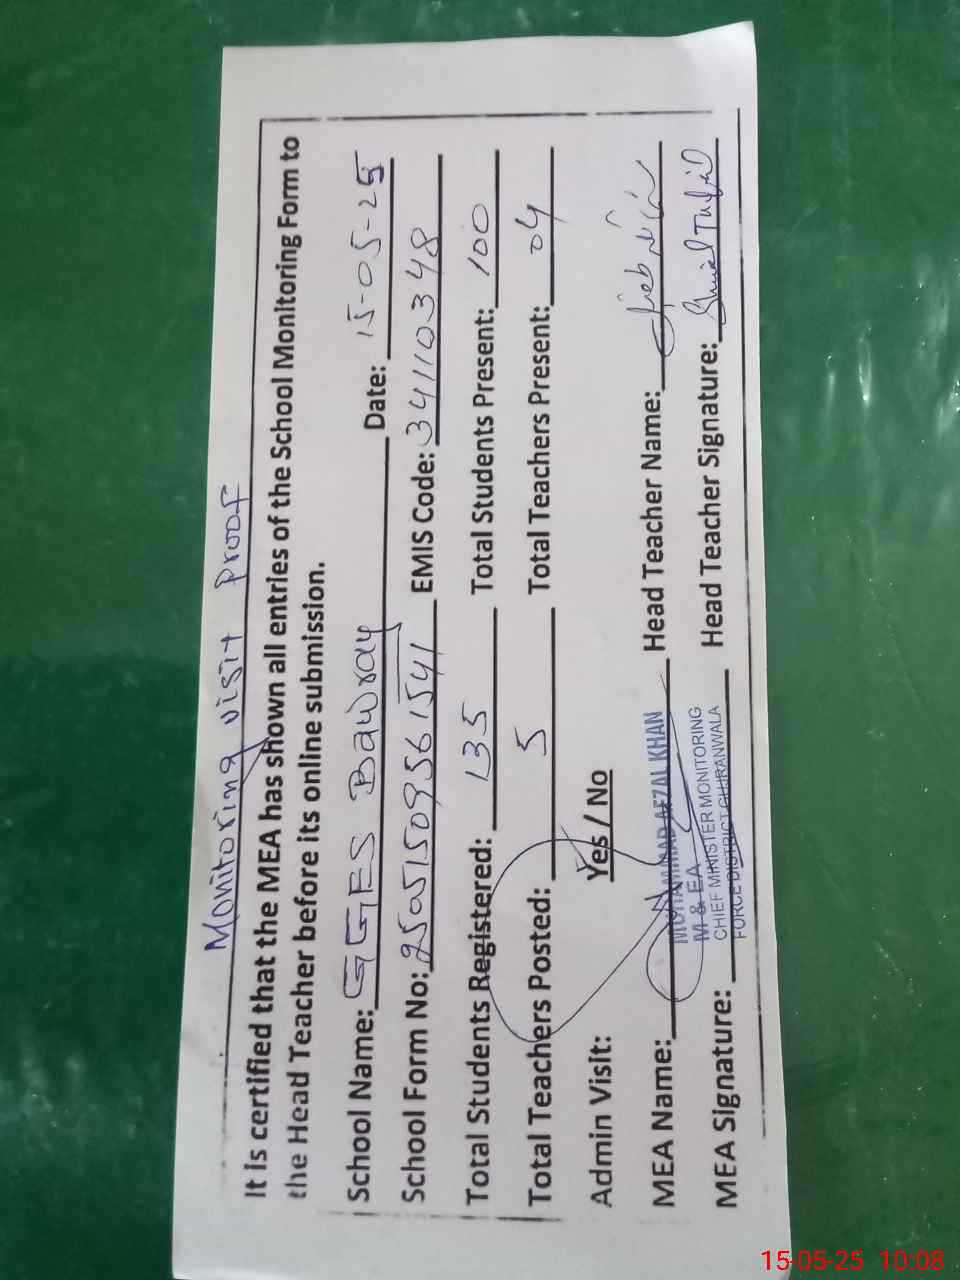 Monitoring visit proof
It is certified that the MEA has shown all entries of the School Monitoring Form to
the Head Teacher before its online submission.
School Name: GGES Bawray Date: 15-05-25
School Form No: 25051509561541 EMIS Code: 34110348
Total Students Registered: 135 Total Students Present: 100
Total Teachers Posted: 5 Total Teachers Present: 04
Admin Visit: Yes / No
MEA Name: MUHAMMAD AFZAL KHAN Head Teacher Name:
M & EA
CHIEF MINISTER MONITORING
FORCE DISTRICT GUJRANWALA
MEA Signature: Head Teacher Signature:
15-05-25 10:08